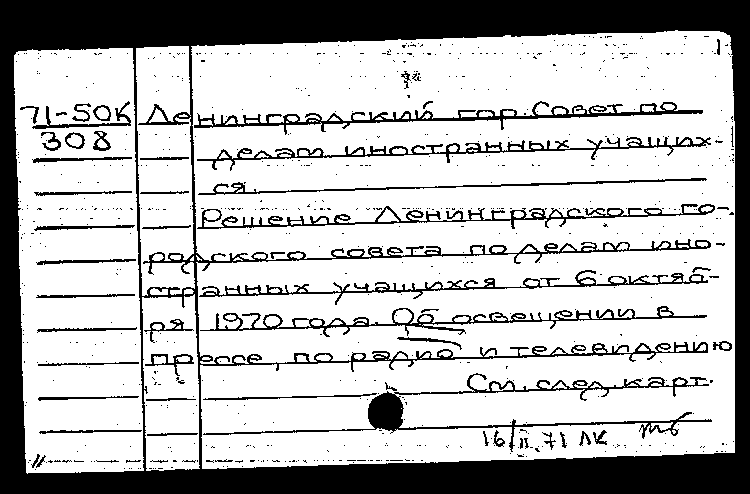 71-50К Ленинградский гор. Совет по
308 делам иностранных учащих-
ся.
Решение Ленинградского го-
родского совета по делам ино-
странных учащихся от 6 октяб-
ря 1970 года. Об освещении в
прессе, по радио и телевидению
См. след. карт.
16/II.71 ЛК